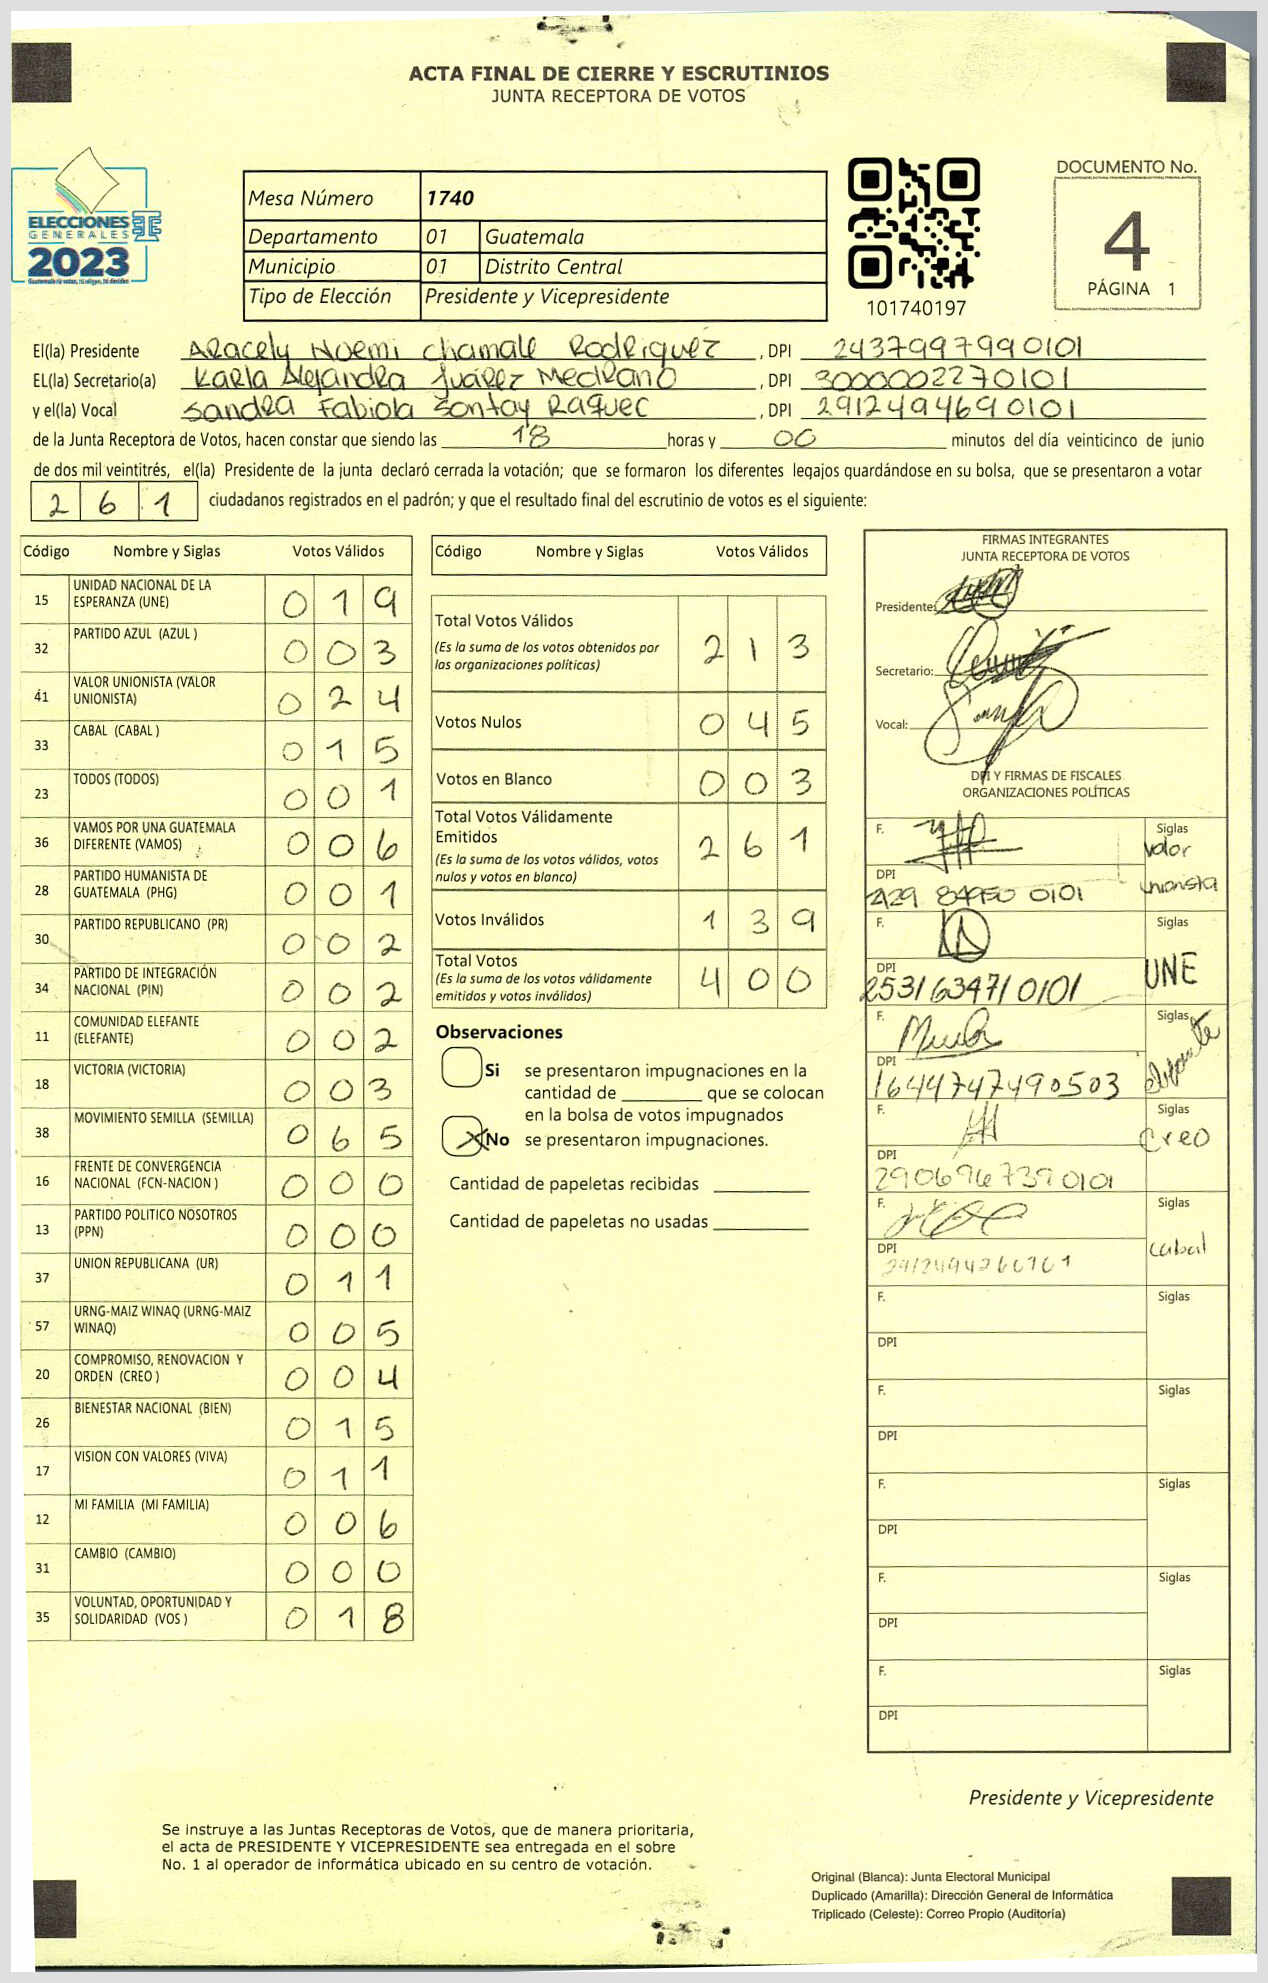 ACTA FINAL DE CIERRE Y ESCRUTINIOS
JUNTA RECEPTORA DE VOTOS
ELECCIONES
GENERALES
2023
Mesa Número 1740
Departamento 01 Guatemala
Municipio 01 Distrito Central
Tipo de Elección Presidente y Vicepresidente
101740197
DOCUMENTO No.
4
PÁGINA 1
El(la) Presidente Aracely Noemi Chamale Rodriguez, DPI 2437997990101
EL(la) Secretario(a) Karla Alejandra Juárez Medrano, DPI 3000002270101
y el(la) Vocal Sandra Fabiola Sontay Raquec, DPI 2912494690101
de la Junta Receptora de Votos, hacen constar que siendo las 18 horas y 00 minutos del día veinticinco de junio
de dos mil veintitrés, el(la) Presidente de la junta declaró cerrada la votación; que se formaron los diferentes legajos guardándose en su bolsa, que se presentaron a votar
2 6 1 ciudadanos registrados en el padrón; y que el resultado final del escrutinio de votos es el siguiente:
Código Nombre y Siglas Votos Válidos
15 UNIDAD NACIONAL DE LA
ESPERANZA (UNE) 0 1 9
32 PARTIDO AZUL (AZUL ) 0 0 3
41 VALOR UNIONISTA (VALOR
UNIONISTA) 0 2 4
33 CABAL (CABAL ) 0 1 5
23 TODOS (TODOS) 0 0 1
36 VAMOS POR UNA GUATEMALA
DIFERENTE (VAMOS) 0 0 6
28 PARTIDO HUMANISTA DE
GUATEMALA (PHG) 0 0 1
30 PARTIDO REPUBLICANO (PR) 0 0 2
34 PARTIDO DE INTEGRACIÓN
NACIONAL (PIN) 0 0 2
11 COMUNIDAD ELEFANTE
(ELEFANTE) 0 0 2
18 VICTORIA (VICTORIA) 0 0 3
38 MOVIMIENTO SEMILLA (SEMILLA) 0 6 5
16 FRENTE DE CONVERGENCIA
NACIONAL (FCN-NACION ) 0 0 0
13 PARTIDO POLITICO NOSOTROS
(PPN) 0 0 0
37 UNION REPUBLICANA (UR) 0 1 1
57 URNG-MAIZ WINAQ (URNG-MAIZ
WINAQ) 0 0 5
20 COMPROMISO, RENOVACION Y
ORDEN (CREO ) 0 0 4
26 BIENESTAR NACIONAL (BIEN) 0 1 5
17 VISION CON VALORES (VIVA) 0 1 1
12 MI FAMILIA (MI FAMILIA) 0 0 6
31 CAMBIO (CAMBIO) 0 0 0
35 VOLUNTAD, OPORTUNIDAD Y
SOLIDARIDAD (VOS ) 0 1 8
Código Nombre y Siglas Votos Válidos
Total Votos Válidos 2 1 3
(Es la suma de los votos obtenidos por
las organizaciones políticas)
Votos Nulos 0 4 5
Votos en Blanco 0 0 3
Total Votos Válidamente
Emitidos 2 6 1
(Es la suma de los votos válidos, votos
nulos y votos en blanco)
Votos Inválidos 1 3 9
Total Votos 4 0 0
(Es la suma de los votos válidamente
emitidos y votos inválidos)
Observaciones
Si se presentaron impugnaciones en la
cantidad de ________ que se colocan
en la bolsa de votos impugnados
No se presentaron impugnaciones.
Cantidad de papeletas recibidas
Cantidad de papeletas no usadas
FIRMAS INTEGRANTES
JUNTA RECEPTORA DE VOTOS
Presidente:
Secretario:
Vocal:
DPI Y FIRMAS DE FISCALES
ORGANIZACIONES POLÍTICAS
F. Siglas
Valor
unionista
DPI
F. Siglas
UNE
DPI
2531634710101
F. Siglas
elefante
DPI
1644747490503
F. Siglas
Creo
DPI
2906967390101
F. Siglas
cabal
DPI
F. Siglas
DPI
F. Siglas
DPI
F. Siglas
DPI
F. Siglas
DPI
F. Siglas
DPI
Presidente y Vicepresidente
Se instruye a las Juntas Receptoras de Votos, que de manera prioritaria,
el acta de PRESIDENTE Y VICEPRESIDENTE sea entregada en el sobre
No. 1 al operador de informática ubicado en su centro de votación.
Original (Blanca): Junta Electoral Municipal
Duplicado (Amarilla): Dirección General de Informática
Triplicado (Celeste): Correo Propio (Auditoría)